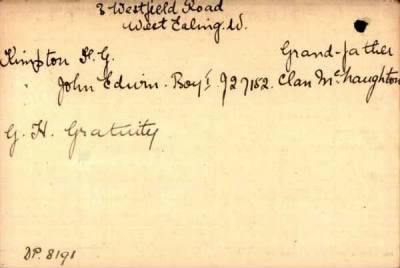 3 Westfield Road
West Ealing. W.
Kimpton H. G. Grand-father
John Edwin. Boy I J27182. Clan McNaughton
G. H. Gratuity
DP. 8191